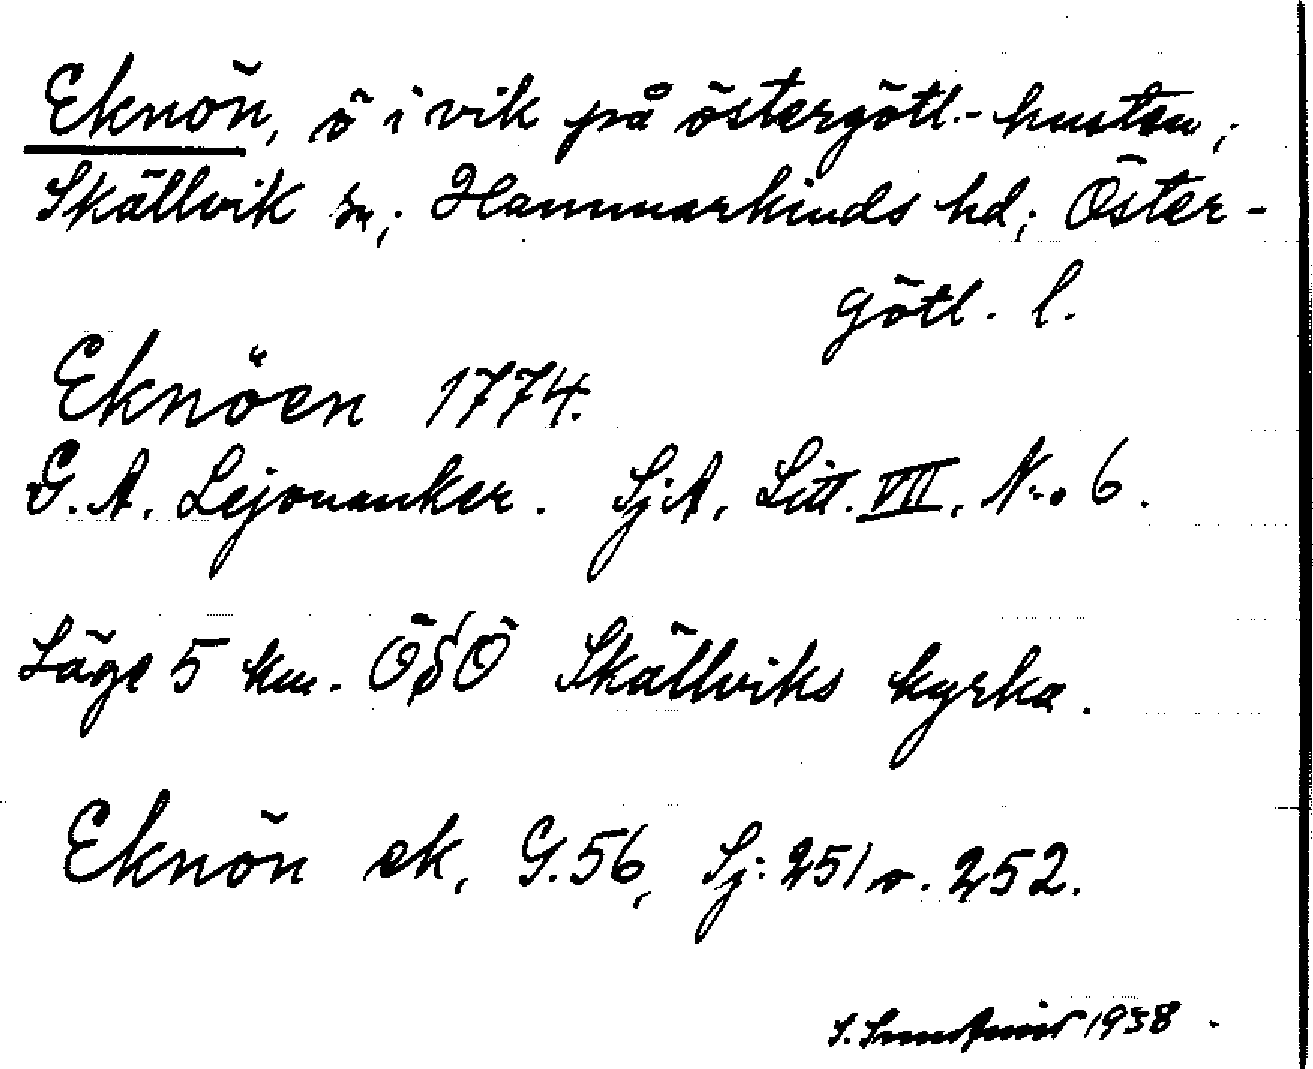 Eknön, ö i vik på östergötl.-kusten;
Skällvik sn; Hammarkinds hd; Öster-
götl. l.
Eknöen 1774.
G. A. Lejonanker. Sj:A, Litt. VIII, N:o 6.
Läge 5 km. ÖSÖ Skällviks kyrka.
Eknön ek, G.56, Sj: 251 o. 252.
S. 1938.